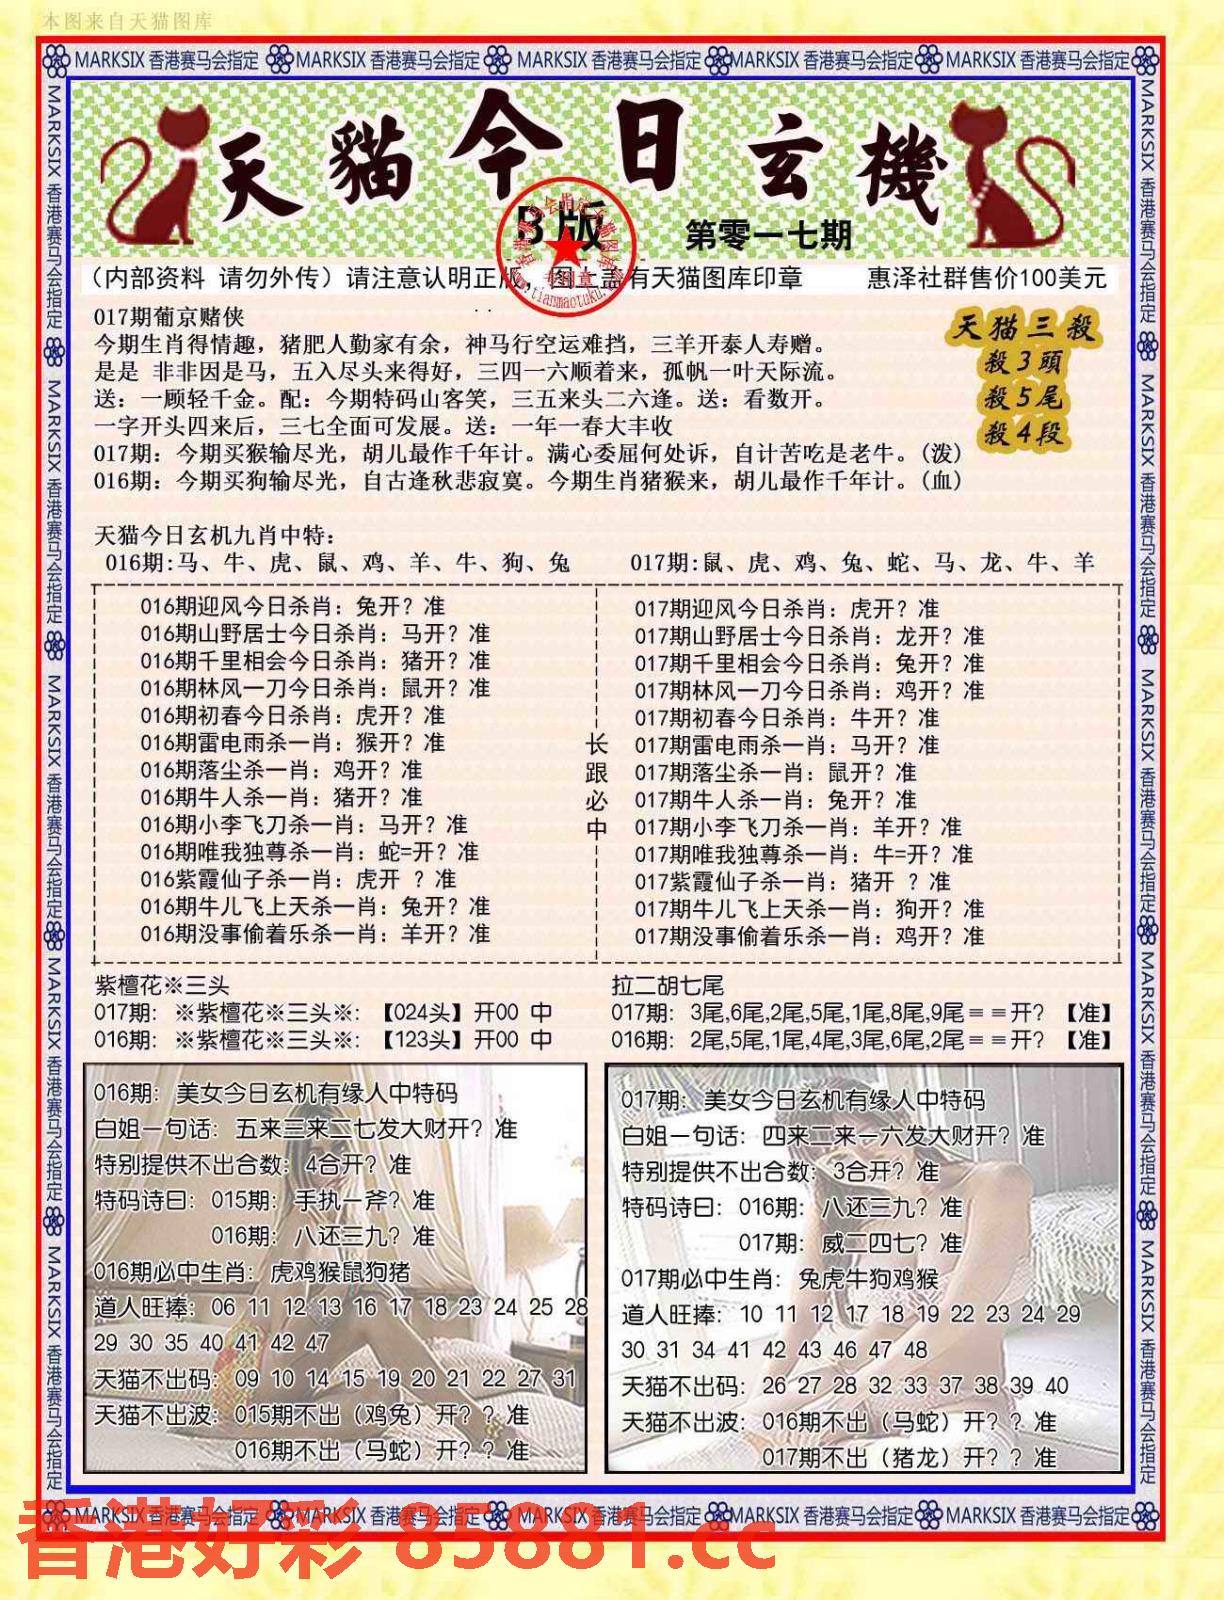 本图来自天猫图库
MARKSIX 香港赛马会指定 MARKSIX 香港赛马会指定 MARKSIX 香港赛马会指定 MARKSIX 香港赛马会指定 MARKSIX 香港赛马会指定
天貓今日玄機
B版
第零一七期
（内部资料 请勿外传）请注意认明正版，图上盖有天猫图库印章 惠泽社群售价100美元
017期葡京赌侠
今期生肖得情趣，猪肥人勤家有余，神马行空运难挡，三羊开泰人寿赠。
是是 非非因是马，五入尽头来得好，三四一六顺着来，孤帆一叶天际流。
送：一顾轻千金。配：今期特码山客笑，三五来头二六逢。送：看数开。
一字开头四来后，三七全面可发展。送：一年一春大丰收
017期：今期买猴输尽光，胡儿最作千年计。满心委屈何处诉，自计苦吃是老牛。(泼)
016期：今期买狗输尽光，自古逢秋悲寂寞。今期生肖猪猴来，胡儿最作千年计。(血)
天猫三殺
殺3頭
殺5尾
殺4段
天猫今日玄机九肖中特：
016期:马、牛、虎、鼠、鸡、羊、牛、狗、兔
017期:鼠、虎、鸡、兔、蛇、马、龙、牛、羊
016期迎风今日杀肖：兔开？准
016期山野居士今日杀肖：马开？准
016期千里相会今日杀肖：猪开？准
016期林风一刀今日杀肖：鼠开？准
016期初春今日杀肖：虎开？准
016期雷电雨杀一肖：猴开？准
016期落尘杀一肖：鸡开？准
016期牛人杀一肖：猪开？准
016期小李飞刀杀一肖：马开？准
016期唯我独尊杀一肖：蛇=开？准
016紫霞仙子杀一肖：虎开 ？准
016期牛儿飞上天杀一肖：兔开？准
016期没事偷着乐杀一肖：羊开？准
长跟必中
017期迎风今日杀肖：虎开？准
017期山野居士今日杀肖：龙开？准
017期千里相会今日杀肖：兔开？准
017期林风一刀今日杀肖：鸡开？准
017期初春今日杀肖：牛开？准
017期雷电雨杀一肖：马开？准
017期落尘杀一肖：鼠开？准
017期牛人杀一肖：兔开？准
017期小李飞刀杀一肖：羊开？准
017期唯我独尊杀一肖：牛=开？准
017紫霞仙子杀一肖：猪开 ？准
017期牛儿飞上天杀一肖：狗开？准
017期没事偷着乐杀一肖：鸡开？准
紫檀花※三头
017期：※紫檀花※三头※：【024头】开00 中
016期：※紫檀花※三头※：【123头】开00 中
拉二胡七尾
017期：3尾,6尾,2尾,5尾,1尾,8尾,9尾＝＝开？【准】
016期：2尾,5尾,1尾,4尾,3尾,6尾,2尾＝＝开？【准】
016期：美女今日玄机有缘人中特码
白姐一句话：五来三来二七发大财开？准
特别提供不出合数：4合开？准
特码诗曰：015期：手执一斧？准
016期：八还三九？准
016期必中生肖：虎鸡猴鼠狗猪
道人旺捧：06 11 12 13 16 17 18 23 24 25 28
29 30 35 40 41 42 47
天猫不出码：09 10 14 15 19 20 21 22 27 31
天猫不出波：015期不出（鸡兔）开？？准
016期不出（马蛇）开？？准
017期：美女今日玄机有缘人中特码
白姐一句话：四来二来一六发大财开？准
特别提供不出合数：3合开？准
特码诗曰：016期：八还三九？准
017期：威二四七？准
017期必中生肖：兔虎牛狗鸡猴
道人旺捧：10 11 12 17 18 19 22 23 24 29
30 31 34 41 42 43 46 47 48
天猫不出码：26 27 28 32 33 37 38 39 40
天猫不出波：016期不出（马蛇）开？？准
017期不出（猪龙）开？？准
MARKSIX 香港赛马会指定 MARKSIX 香港赛马会指定 MARKSIX 香港赛马会指定 MARKSIX 香港赛马会指定 MARKSIX 香港赛马会指定
MARKSIX 香港赛马会指定 MARKSIX 香港赛马会指定 MARKSIX 香港赛马会指定 MARKSIX 香港赛马会指定 MARKSIX 香港赛马会指定
MARKSIX 香港赛马会指定 MARKSIX 香港赛马会指定 MARKSIX 香港赛马会指定 MARKSIX 香港赛马会指定 MARKSIX 香港赛马会指定
香港好彩 85881.cc